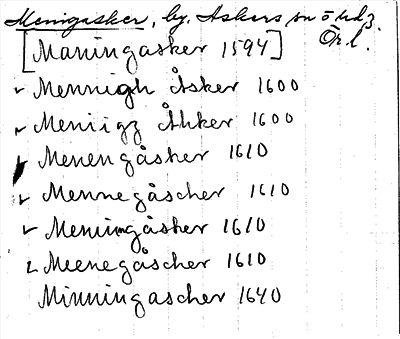 Menigasker, by. Askers sn ö hd
Ör l.
[Maningasker 1594]
Mennigh Åsker 1600
Meniigz Åhker 1600
Menengåsker 1610
Mennegåscher 1610
Meningåsker 1610
Meenegåscher 1610
Minningascher 1640